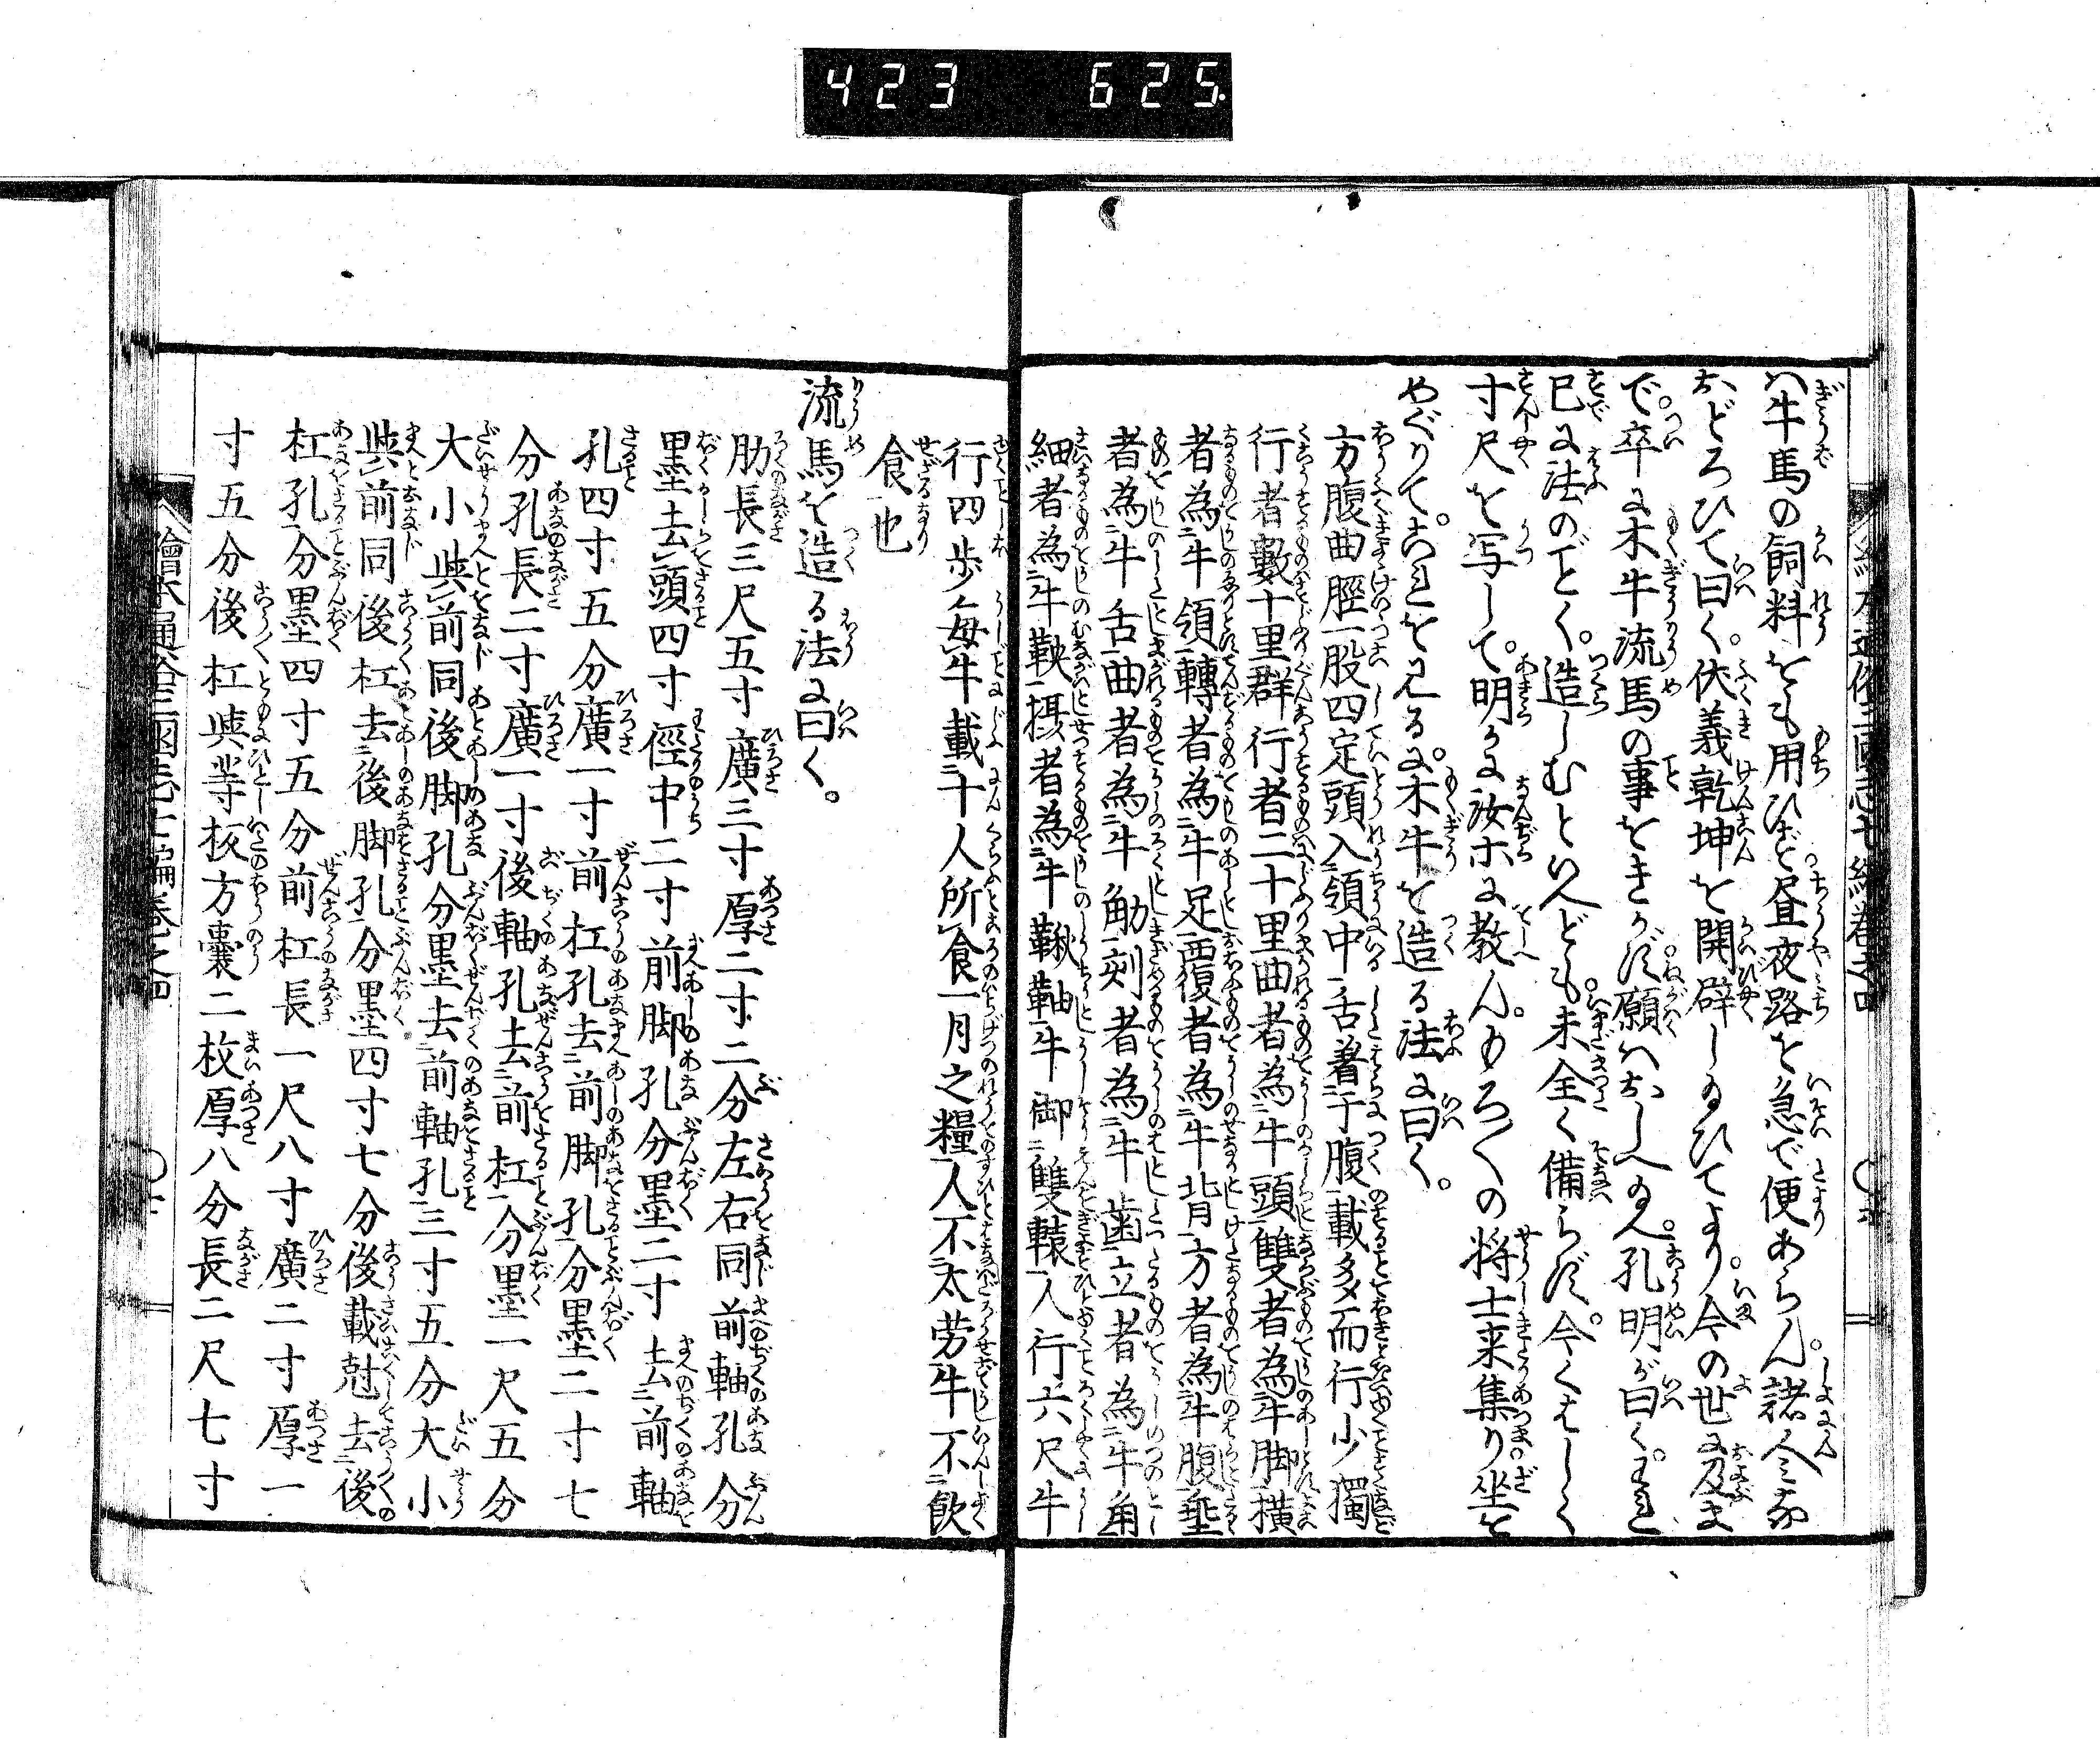 423 625.
八牛馬の飼料をも用ひず昼夜路を急で便あらん。諸人みな
おどろひて曰く。伏義乾坤を開闢しるひてより。今の世に及ま
で。卒に木牛流馬の事をきかず。願ハおしへ玉へ。孔明が曰く。われ
已に法のごとく。造しむといへども。未全く備らず。今くはしく
寸尺を写して。明かに汝ホに教ん。もろ〱の将士来集り坐を
めぐりて。これを見るに。木牛を造る法に曰く。
方腹曲脛一股四定頭入領中舌着于腹載多而行少獨
行者數十里群行者二十里曲者為牛頭雙者為牛脚横
者為牛領轉者為牛足覆者為牛背方者為牛腹垂
者為牛舌曲者為牛觔刻者為牛歯立者為牛角
細者為牛鞅摂者為牛鞦軸牛御雙轅人行六尺牛
行四歩毎牛載十人所食一月之糧人不太劳牛不飲
食也
流馬を造る法に曰く。
肋長三尺五寸廣三寸厚二寸二分左右同前軸孔分
墨去頭四寸徑中二寸前脚孔分墨二寸去前軸
孔四寸五分廣一寸前杠孔去前脚孔分墨二寸七
分孔長二寸廣一寸後軸孔去前杠分墨一尺五分
大小與前同後脚孔分墨去前軸孔三寸五分大小
與前同後杠去後脚孔分墨四寸七分後載尅去後
杠孔分墨四寸五分前杠長一尺八寸廣二寸厚一
寸五分後杠與等板方囊二枚厚八分長二尺七寸
繪本通俗三國志七編巻之四